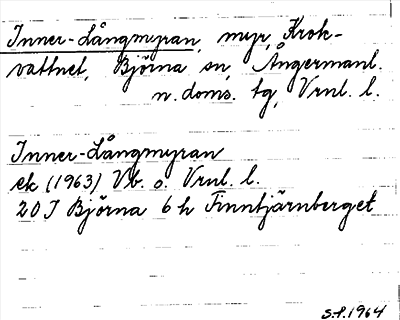 Inner-Långmyran, myr, Krok-
vattnet, Björna sn, Ångermanl.
n. doms. tg, Vrnl. l.
Inner-Långmyran
ek (1963) Vb. o. Vrnl. l.
20 J Björna 6 h Finntjärnberget
S.P. 1964